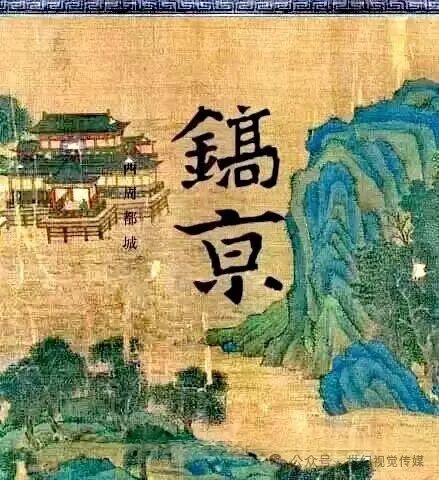 鎬亰
西周都城
公众号 · 世纪视觉传媒